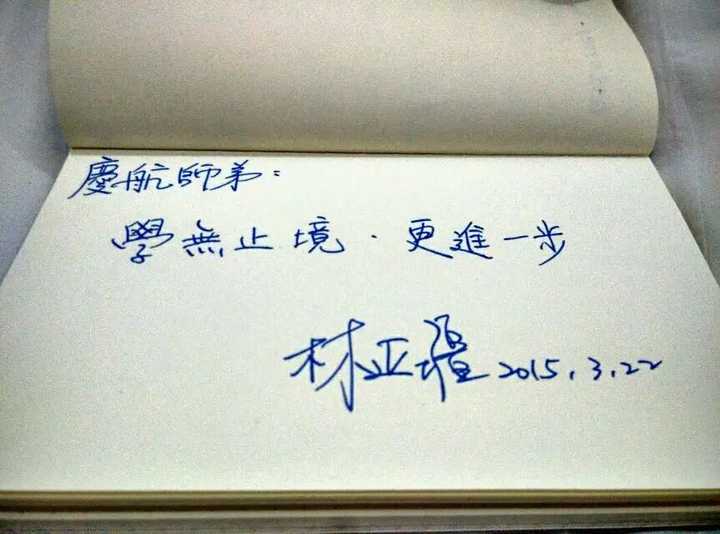 慶航師弟：
學無止境．更進一步
林正 2015.3.22